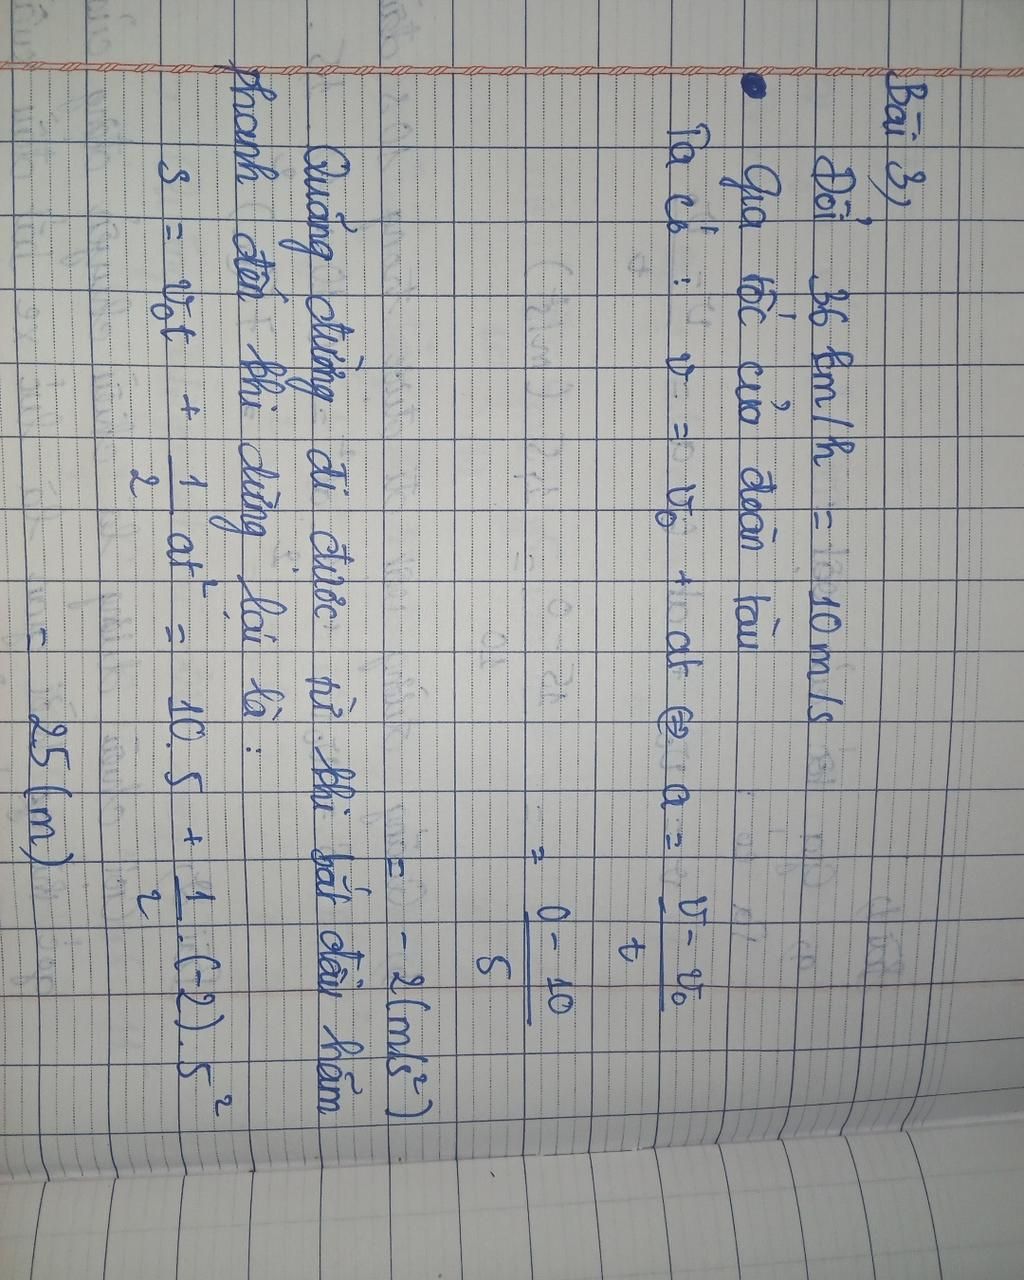 Bài 3,
Đổi 36 km/h = 10 m/s
Gia tốc của đoàn tàu
Ta có : v = v₀ + at ⇔ a = \frac{v - v₀}{t}
= \frac{0 - 10}{5}
= - 2 (m/s²)
Quãng đường đi được từ khi bắt đầu hãm
phanh đến khi dừng lại là :
s = v₀t + \frac{1}{2} at² = 10. 5 + \frac{1}{2} . (-2) . 5²
= 25 (m)